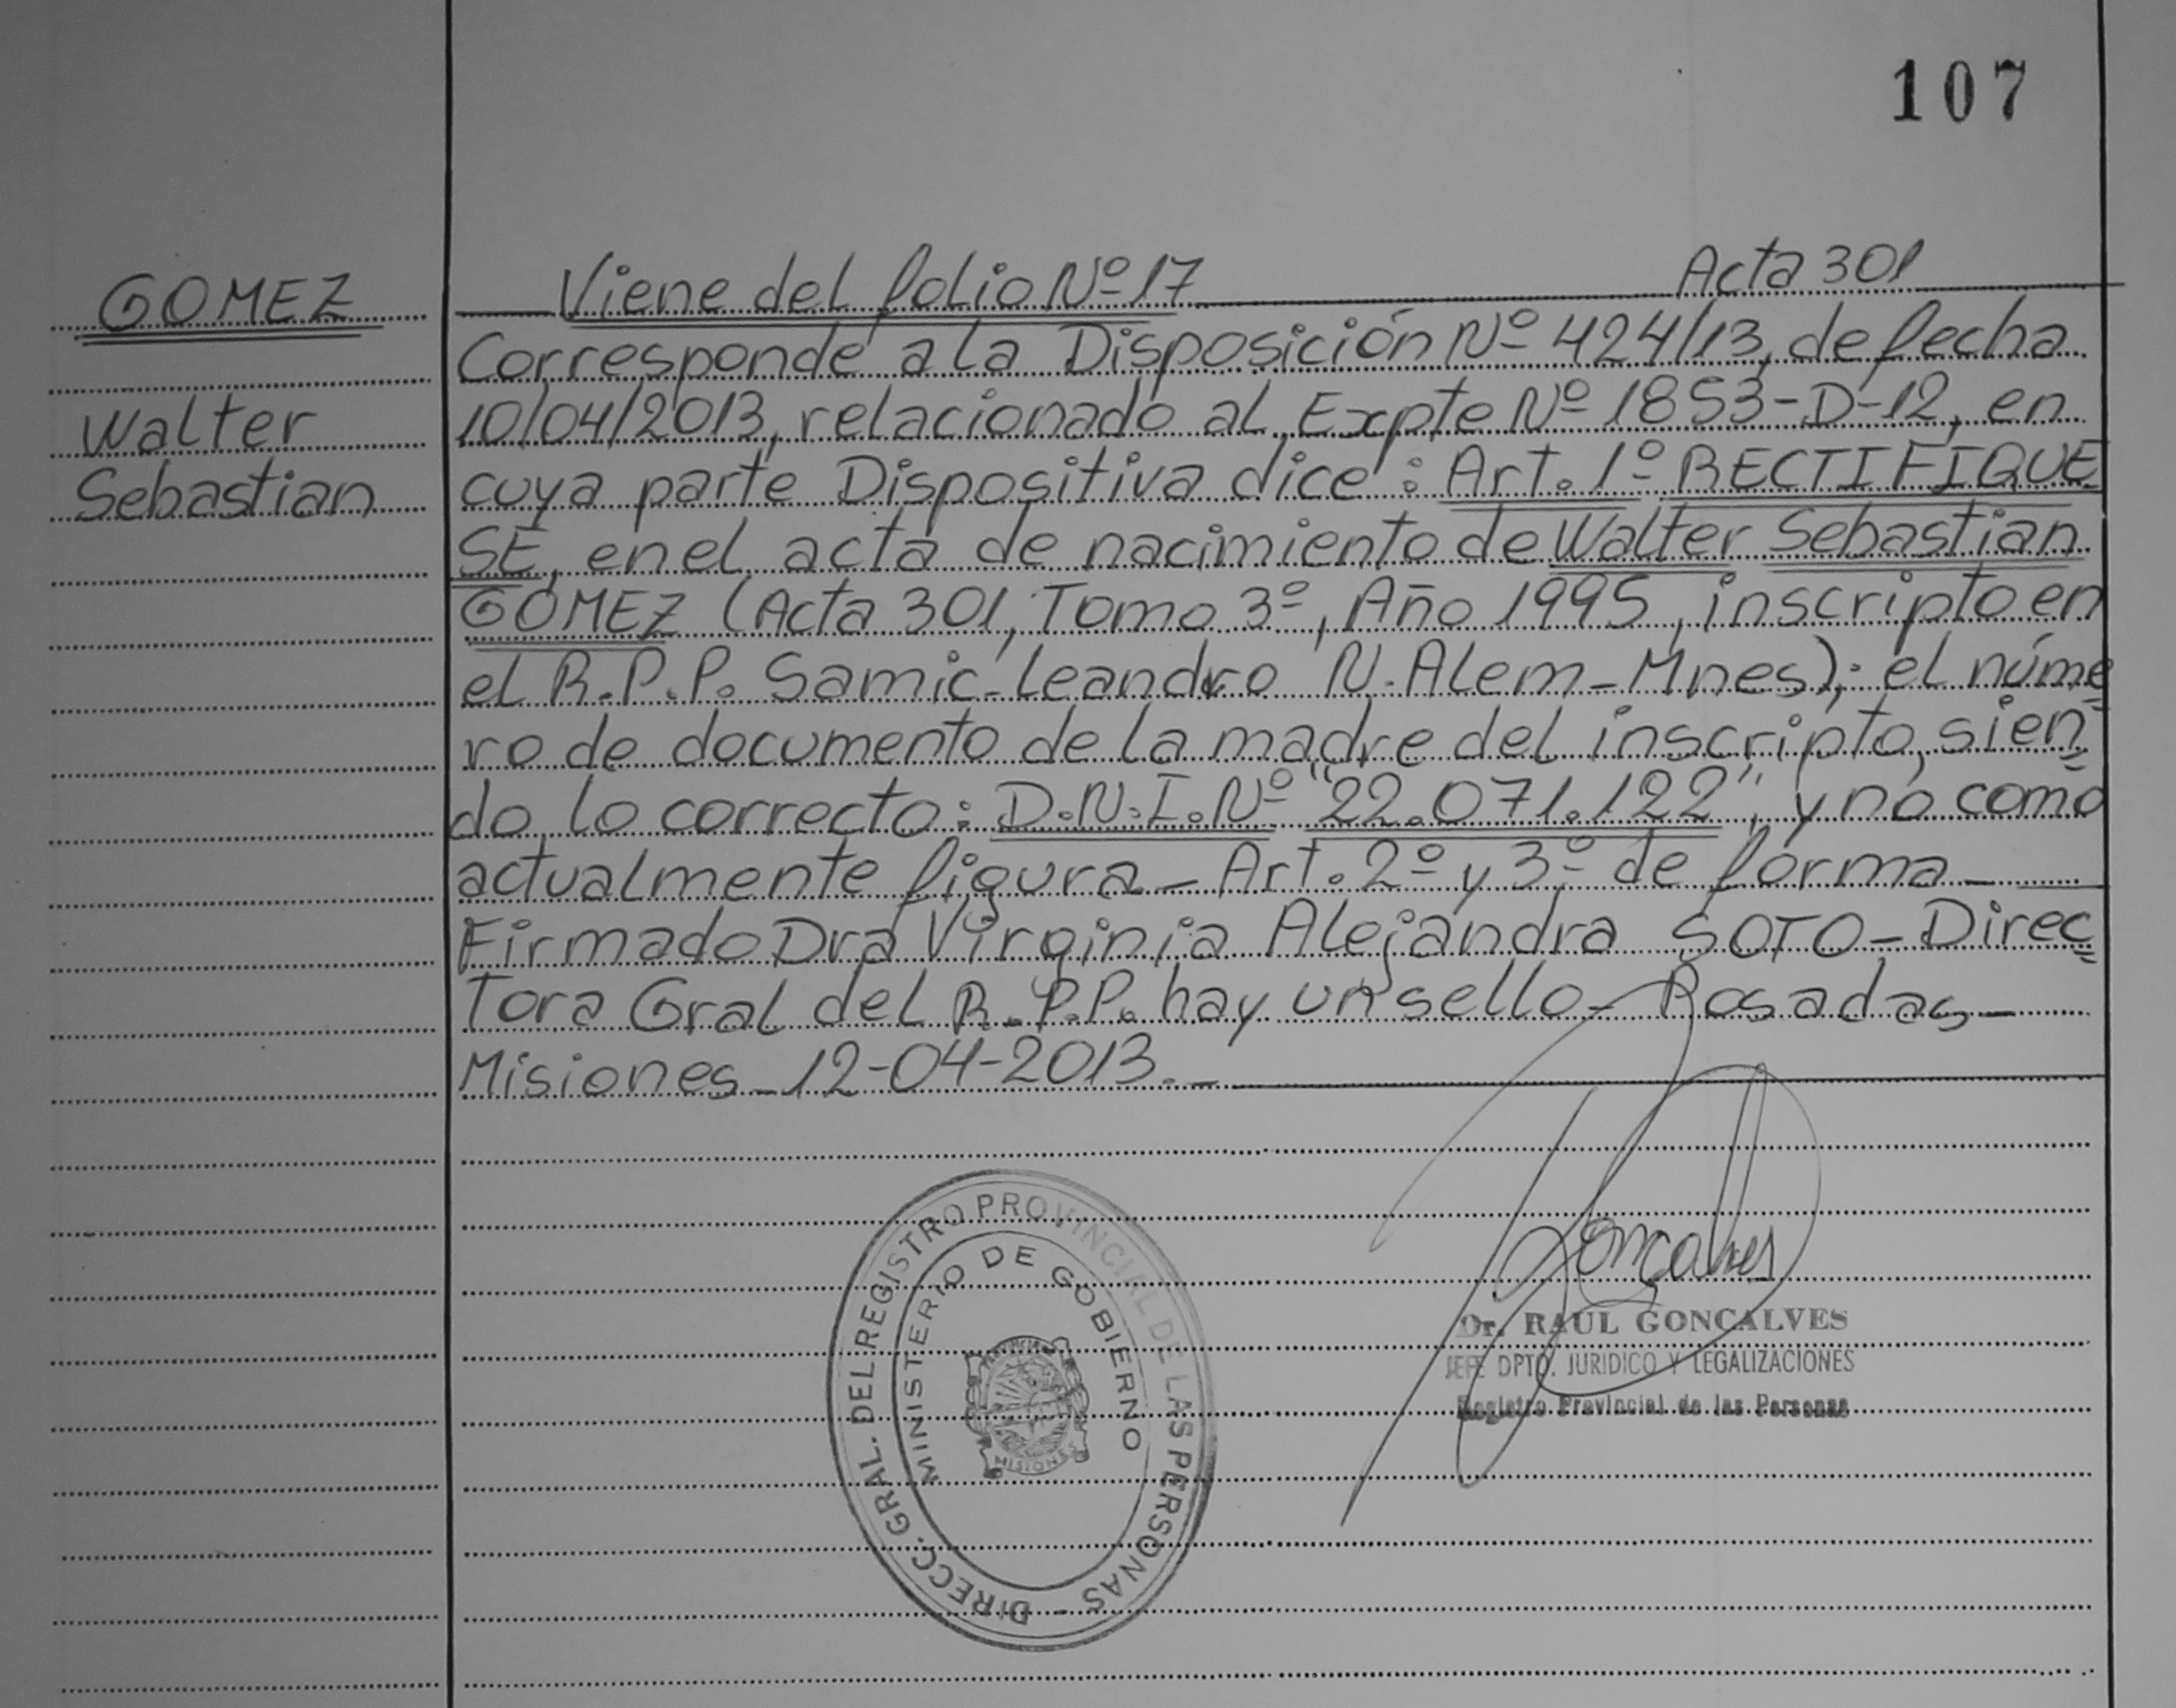 107
GOMEZ
Walter
Sebastian
Viene del folio Nº 17 Acta 301
Corresponde a la Disposición Nº 424/13, de fecha
10/04/2013, relacionado al Expte Nº 1853-D-12, en
cuya parte Dispositiva dice: Art. 1º RECTIFIQUE
SE, en el acta de nacimiento de Walter Sebastian
GOMEZ (Acta 301, Tomo 3º, Año 1995, inscripto en
el R.P.P. Samic-Leandro N. Alem-Mnes); el núme
ro de documento de la madre del inscripto, sien
do lo correcto: D.N.I. Nº "22.071.122", y no como
actualmente figura - Art. 2º y 3º de forma -
Firmado Dra Virginia Alejandra SOTO - Direc
Tora Gral del R.P.P. hay un sello - Posadas -
Misiones - 12-04-2013. -
DIRECC. GRAL. DEL REGISTRO PROVINCIAL DE LAS PERSONAS -
MINISTERIO DE GOBIERNO
MISIONES
Goncalves
Dr. RAUL GONCALVES
JEFE DPTO. JURIDICO Y LEGALIZACIONES
Registro Provincial de las Personas